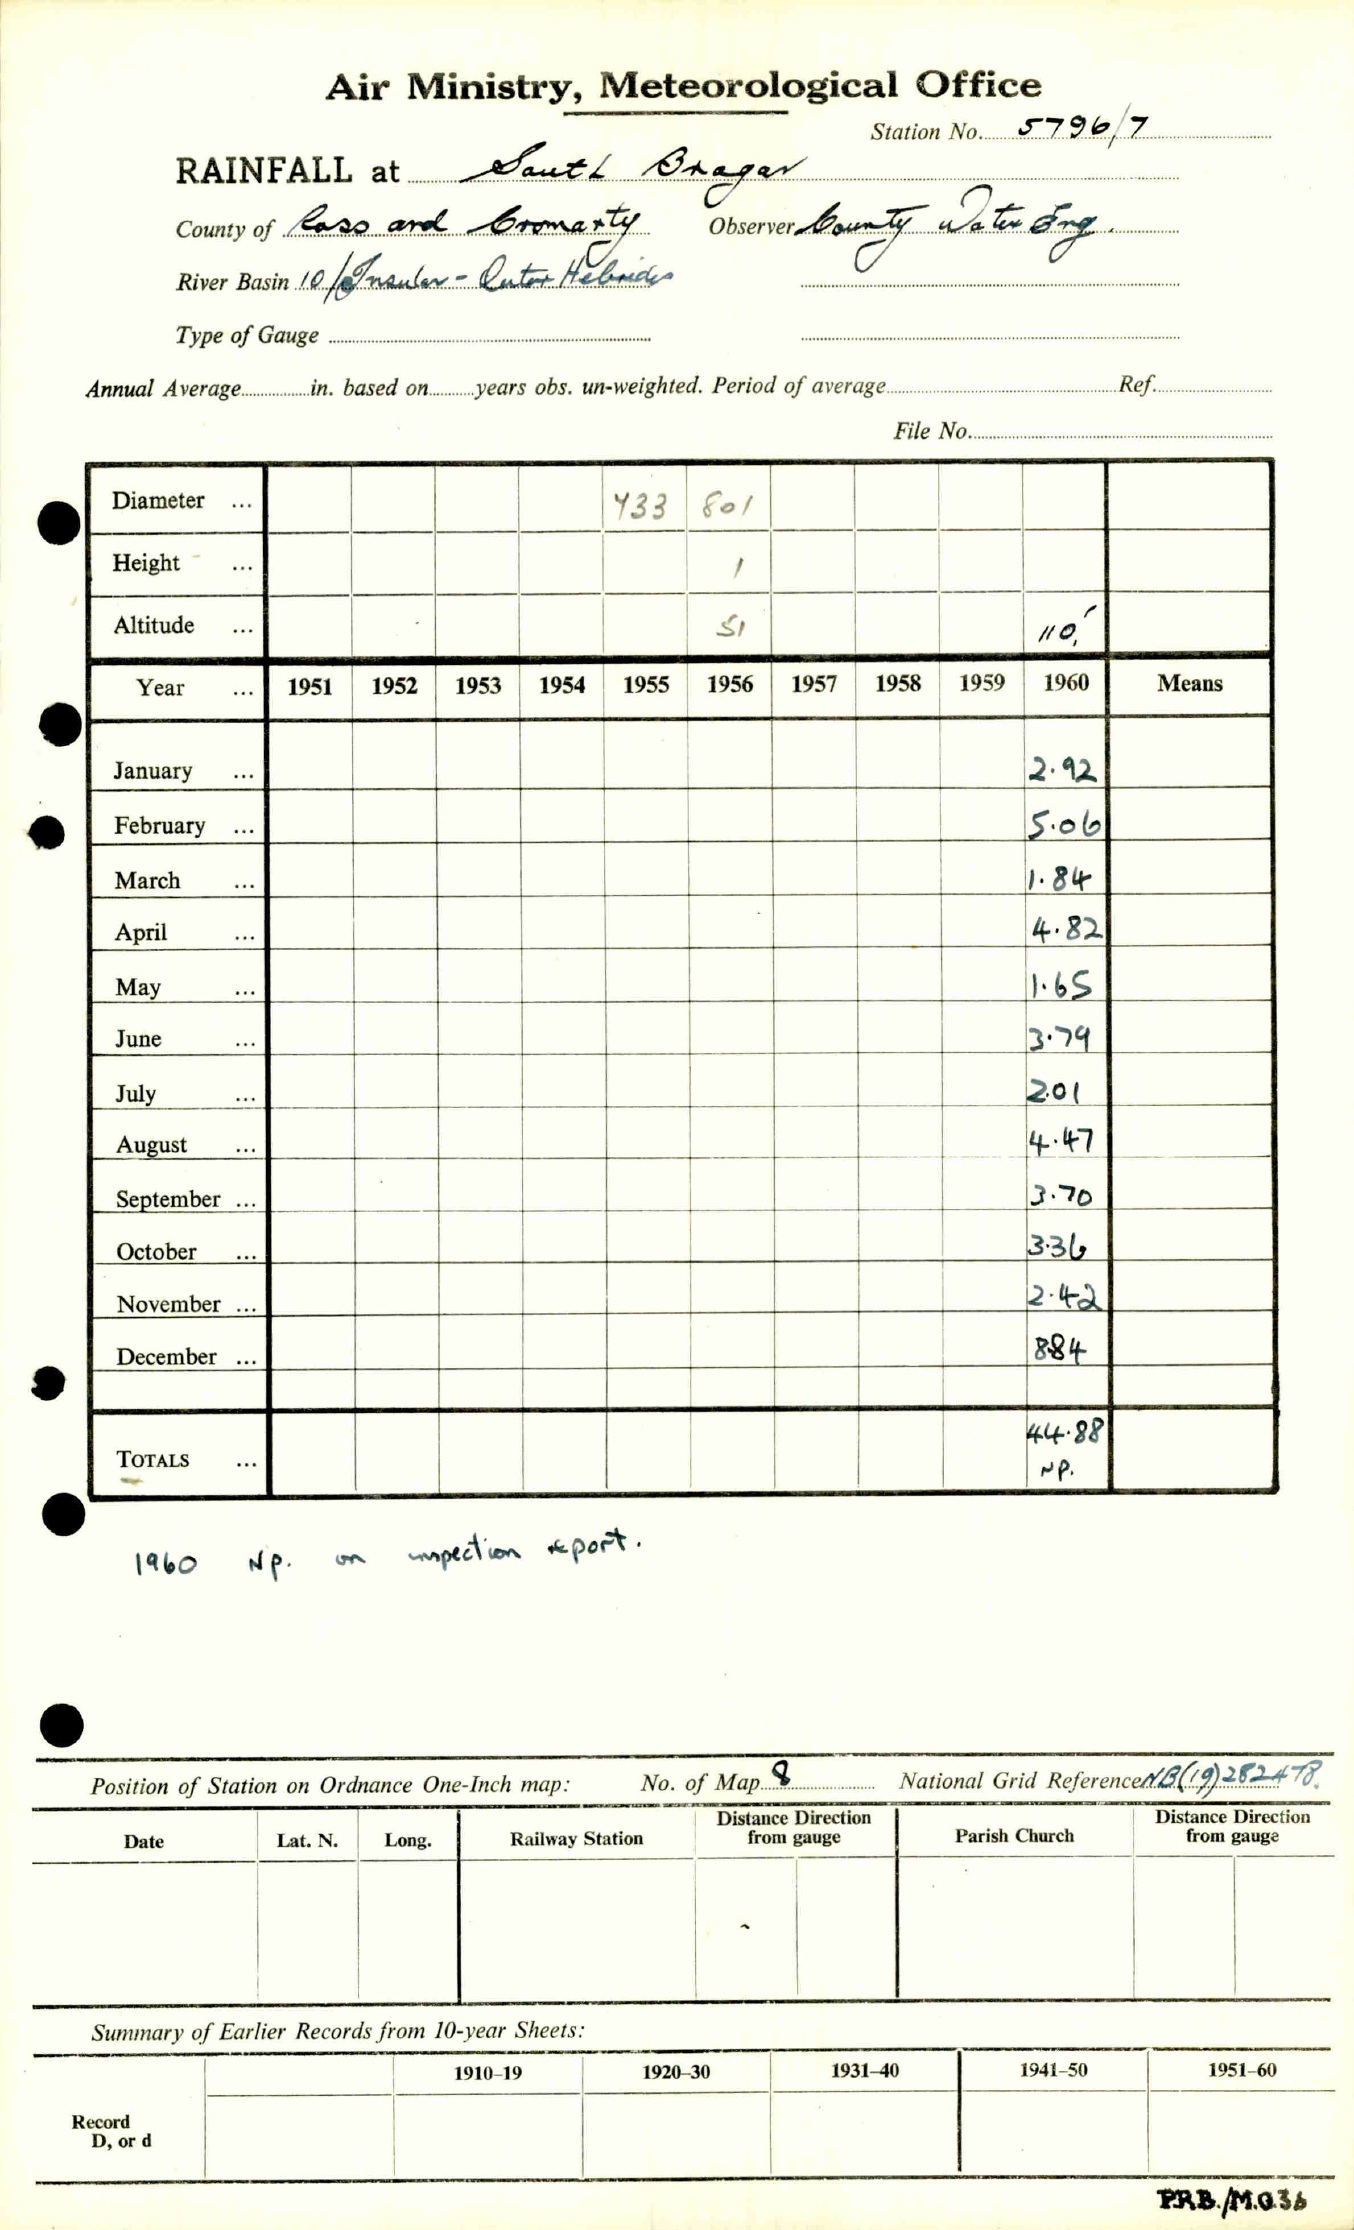 Air Ministry, Meteorological Office
Station No. 5796/7
RAINFALL at South Bragar
County of Ross and Cromarty Observer County Water Eng.
River Basin 10/ Insular - Outer Hebrides
Type of Gauge
Annual Average in. based on years obs. un-weighted. Period of average Ref.
File No.
Diameter ... 433 801
Height ... 1
Altitude ... 51 110'
Year ... 1951 1952 1953 1954 1955 1956 1957 1958 1959 1960 Means
January ... 2.92
February ... 5.06
March ... 1.84
April ... 4.82
May ... 1.65
June ... 3.79
July ... 2.01
August ... 4.47
September ... 3.70
October ... 3.36
November ... 2.42
December ... 8.84
TOTALS ... 44.88
NP.
1960 Np. on inspection report.
Position of Station on Ordnance One-Inch map: No. of Map 8 National Grid Reference NB(19)282478.
Date Lat. N. Long. Railway Station Distance Direction from gauge Parish Church Distance Direction from gauge
Summary of Earlier Records from 10-year Sheets:
1910–19 1920–30 1931–40 1941–50 1951–60
Record
D, or d
PRB./M.O.36